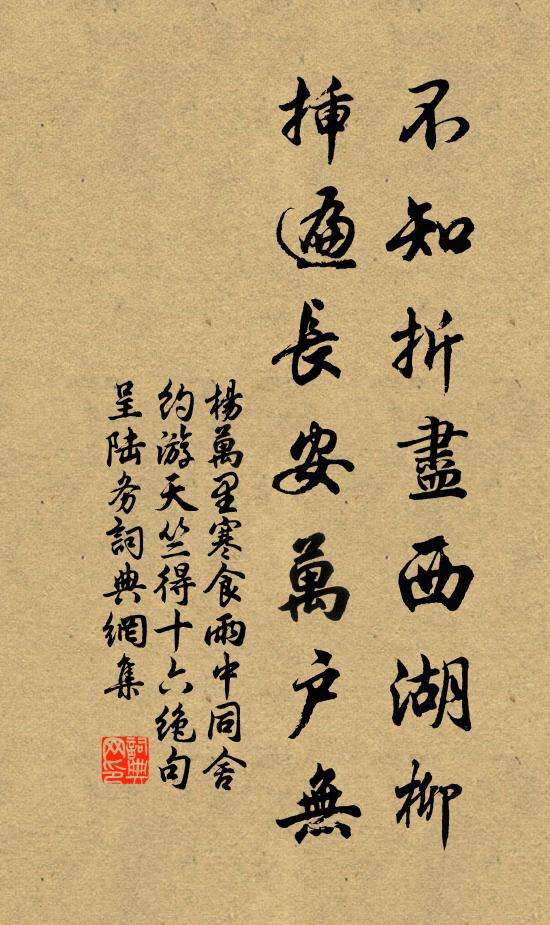 不知折盡西湖柳
插遍長安萬戶無
楊萬里寒食雨中同舍
約游天竺得十六絕句
呈陆务詞典網集
詞典网印